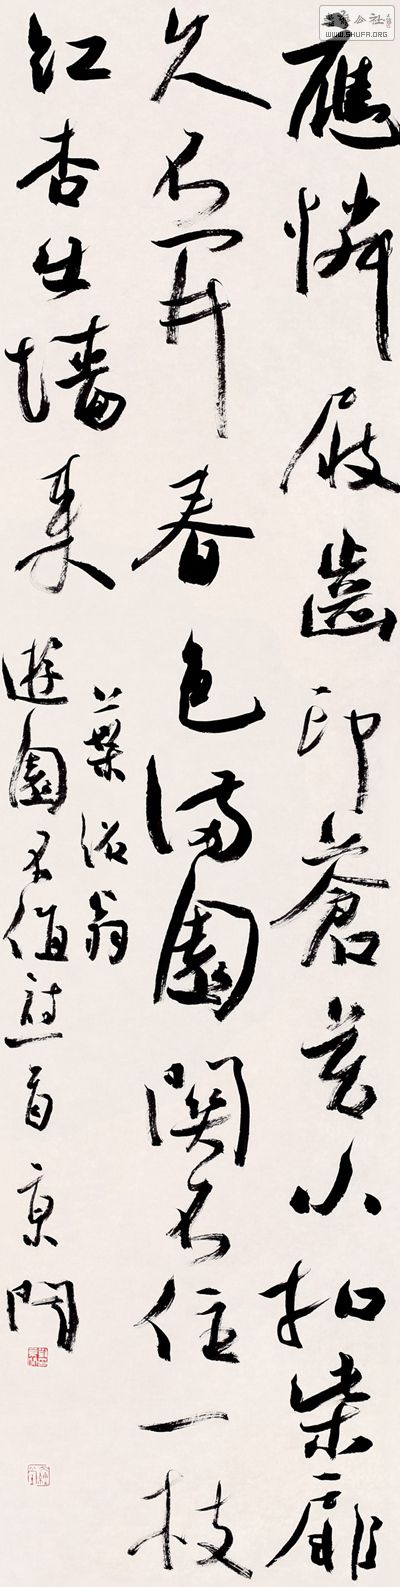 書法公社
WWW.SHUFA.ORG
應憐屐齒印蒼苔小扣柴扉
久不開春色滿園關不住一枝
紅杏出墻來
葉紹翁
遊園不值詩一首